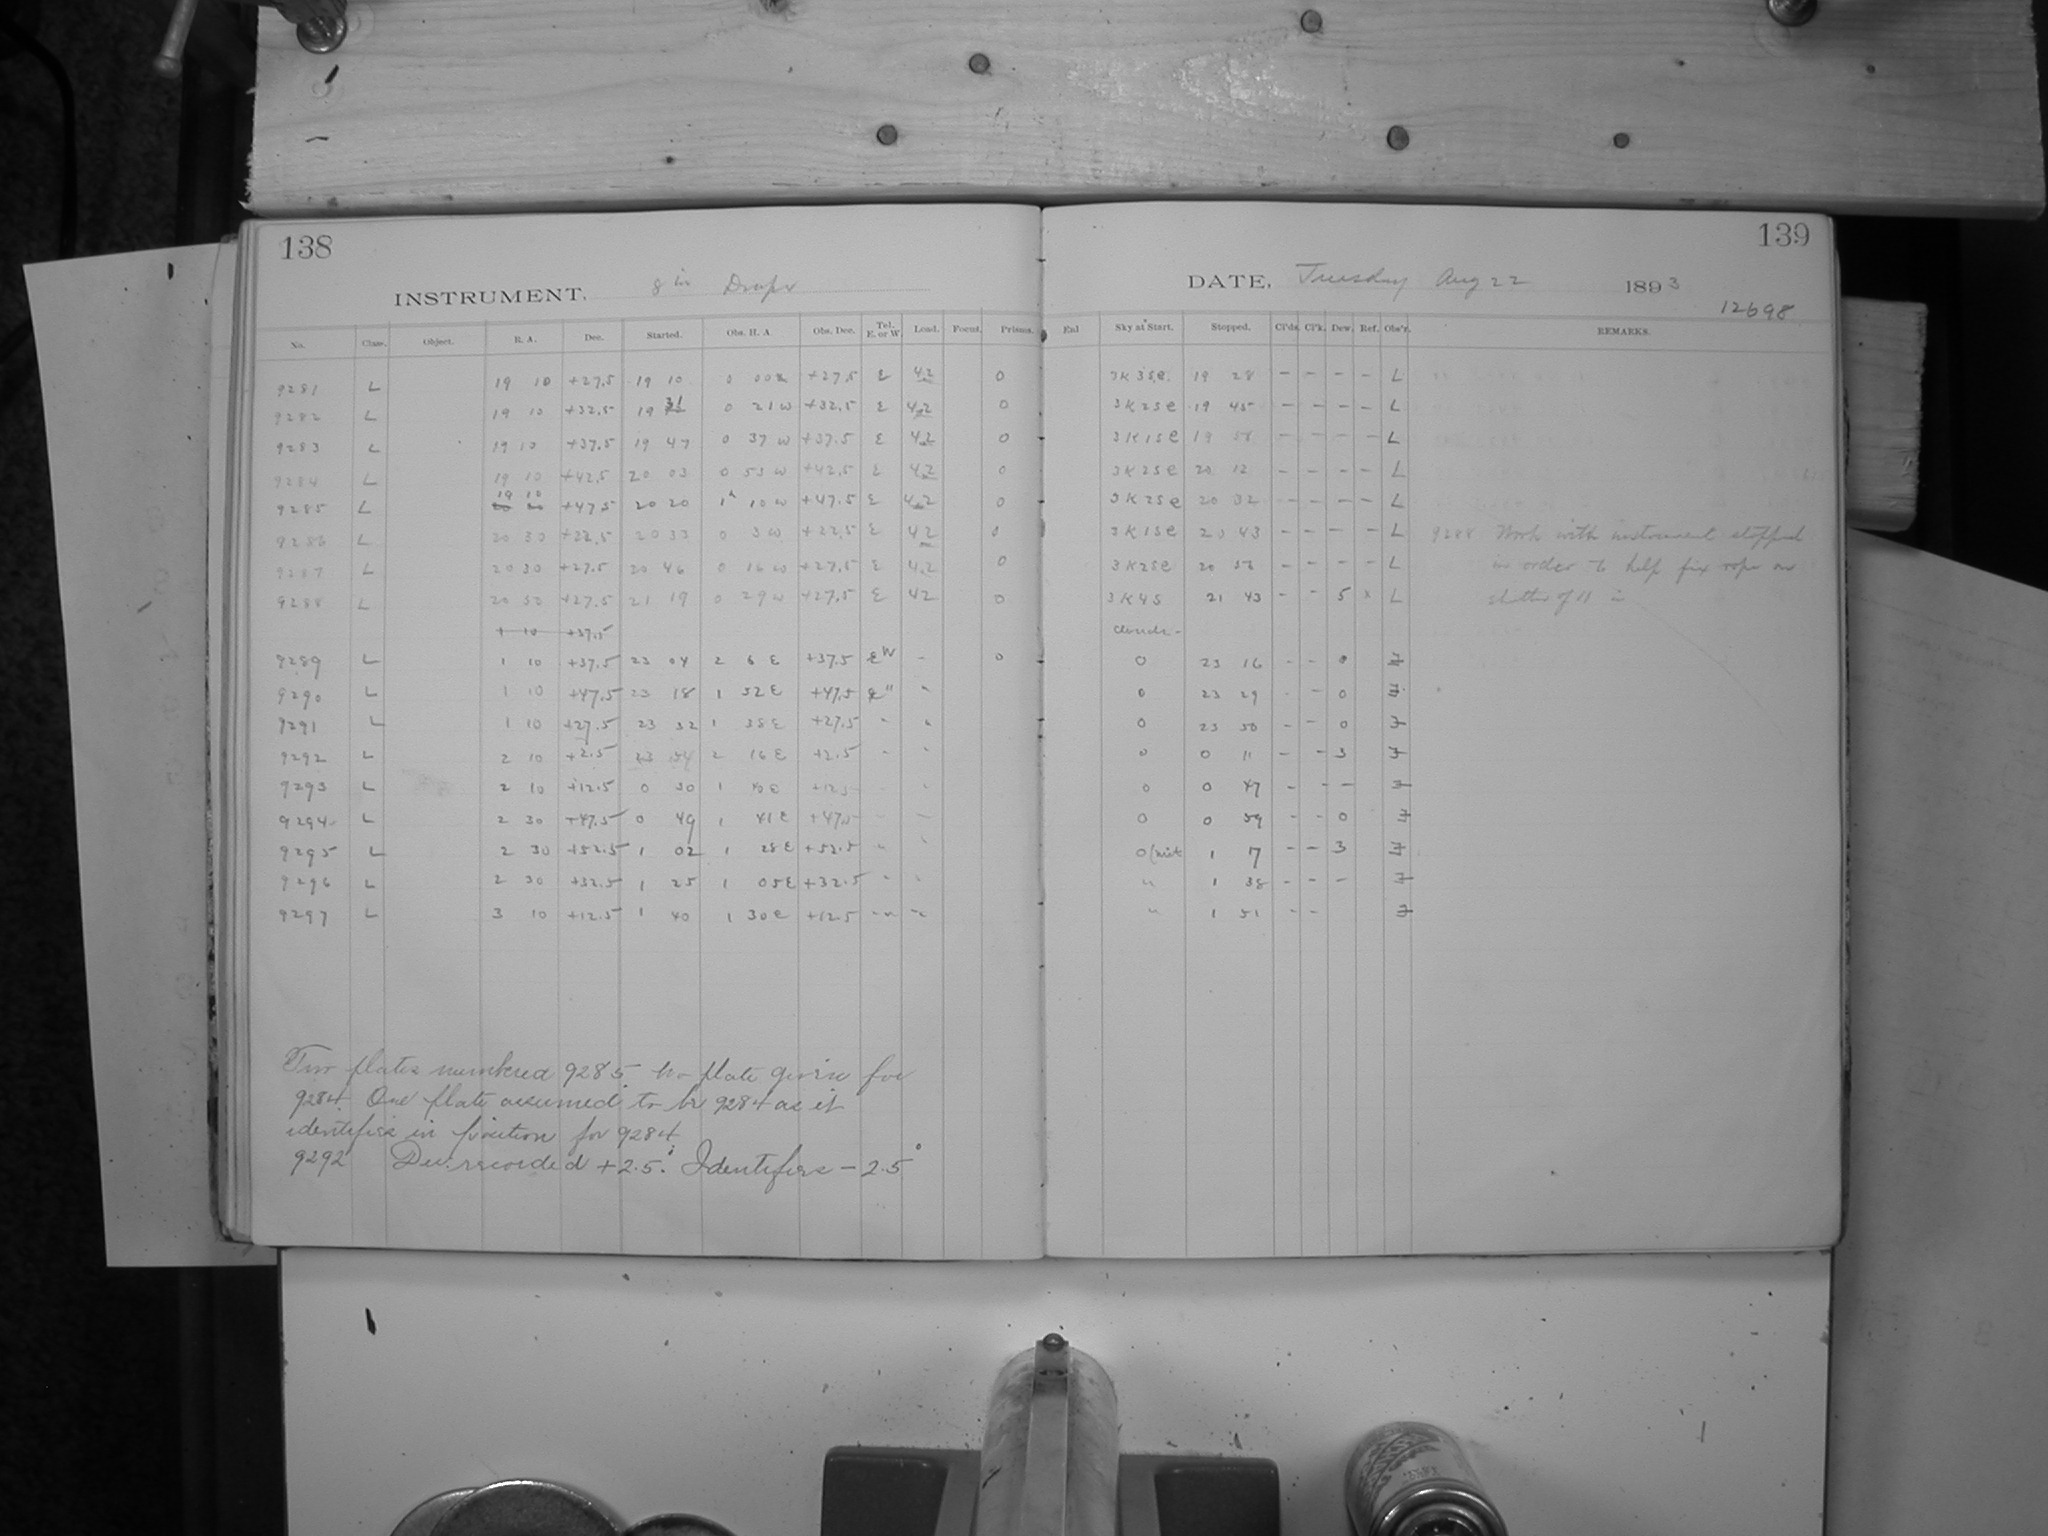 138
139
INSTRUMENT, 8 in Draper
DATE, Tuesday Aug 22 1893
12698
No. Class. Object. R. A. Dec. Started. Obs. H. A Obs. Dec. Tel. E. or W. Lead. Focus. Prisms. Exl Sky at Start. Stopped. Cl'ds. Cl'k. Dew. Ref. Obs'r. REMARKS.
9281 L 19 10 +27.5 19 10 0 00 +27.5 E 42 0 3K3Se. 19 28 - - - - L
9282 L 19 10 +32.5 19 31 0 21 W +32.5 E 42 0 3K2Se 19 45 - - - - L
9283 L 19 10 +37.5 19 47 0 37 W +37.5 E 42 0 3K1Se 19 58 - - - - L
9284 L 19 10 +42.5 20 03 0 53 W +42.5 E 42 0 3K2Se 20 12 - - - - L
9285 L 19 10 +47.5 20 20 1h 10 W +47.5 E 42 0 3K2Se 20 32 - - - - L
9286 L 20 30 +22.5 20 33 0 3 W +22.5 E 42 0 3K1Se 20 43 - - - - L 9288 Work with instrument stopped
9287 L 20 30 +27.5 20 46 0 16 W +27.5 E 42 0 3K2Se 20 - - - - L in order to help fix rope on
9288 L 20 50 +27.5 21 19 0 29 W +27.5 E 42 0 3K4S 21 43 - - 5 x L shutter of 11 in
1 10 +37.5 clouds -
9289 L 1 10 +37.5 23 04 2 6 E +37.5 E W - 0 0 23 16 - - 0 F
9290 L 1 10 +47.5 23 18 1 52 E +47.5 E " " 0 23 29 - - 0 F
9291 L 1 10 +27.5 23 32 1 38 E +27.5 " " 0 23 50 - - 0 F
9292 L 2 10 +2.5 23 54 2 16 E +2.5 " " 0 0 11 - - 3 F
9293 L 2 10 +12.5 0 30 1 40 E +12.5 " " 0 0 47 - - - F
9294 L 2 30 +47.5 0 49 1 41 E +47.5 " " 0 0 59 - - 0 F
9295 L 2 30 +52.5 1 02 1 28 E +52.5 " " 0 (mist 1 7 - - 3 F
9296 L 2 30 +32.5 1 25 1 05 E +32.5 " " " 1 38 - - - F
9297 L 3 10 +12.5 1 40 1 30 E +12.5 " " " 1 51 - - F
Two plates numbered 9285 no plate given for
9284. One plate assumed to be 9284 as it
identifies in position for 9284.
9292 Dec. recorded +2.5.° Identifies - 2.5°